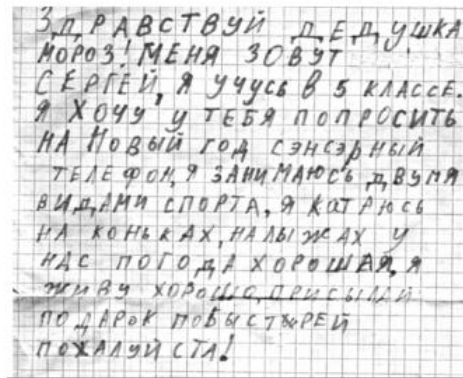 ЗДРАВСТВУЙ ДЕДУШКА
МОРОЗ! МЕНЯ ЗОВУТ
СЕРГЕЙ, Я УЧУСЬ В 5 КЛАССЕ.
Я ХОЧУ У ТЕБЯ ПОПРОСИТЬ
НА НОВЫЙ ГОД СЭНСЭРНЫЙ
ТЕЛЕФОН, Я ЗАНИМАЮСЬ ДВУМЯ
ВИДАМИ СПОРТА, Я КАТАЮСЬ
НА КОНЬКАХ, НАЛЫЖАХ У
НАС ПОГОДА ХОРОШАЯ, Я
ЖИВУ ХОРОШО, ПРИСЫЛАЙ
ПОДАРОК ПОБЫСТЫРЕЙ
ПОЖАЛУЙСТА!